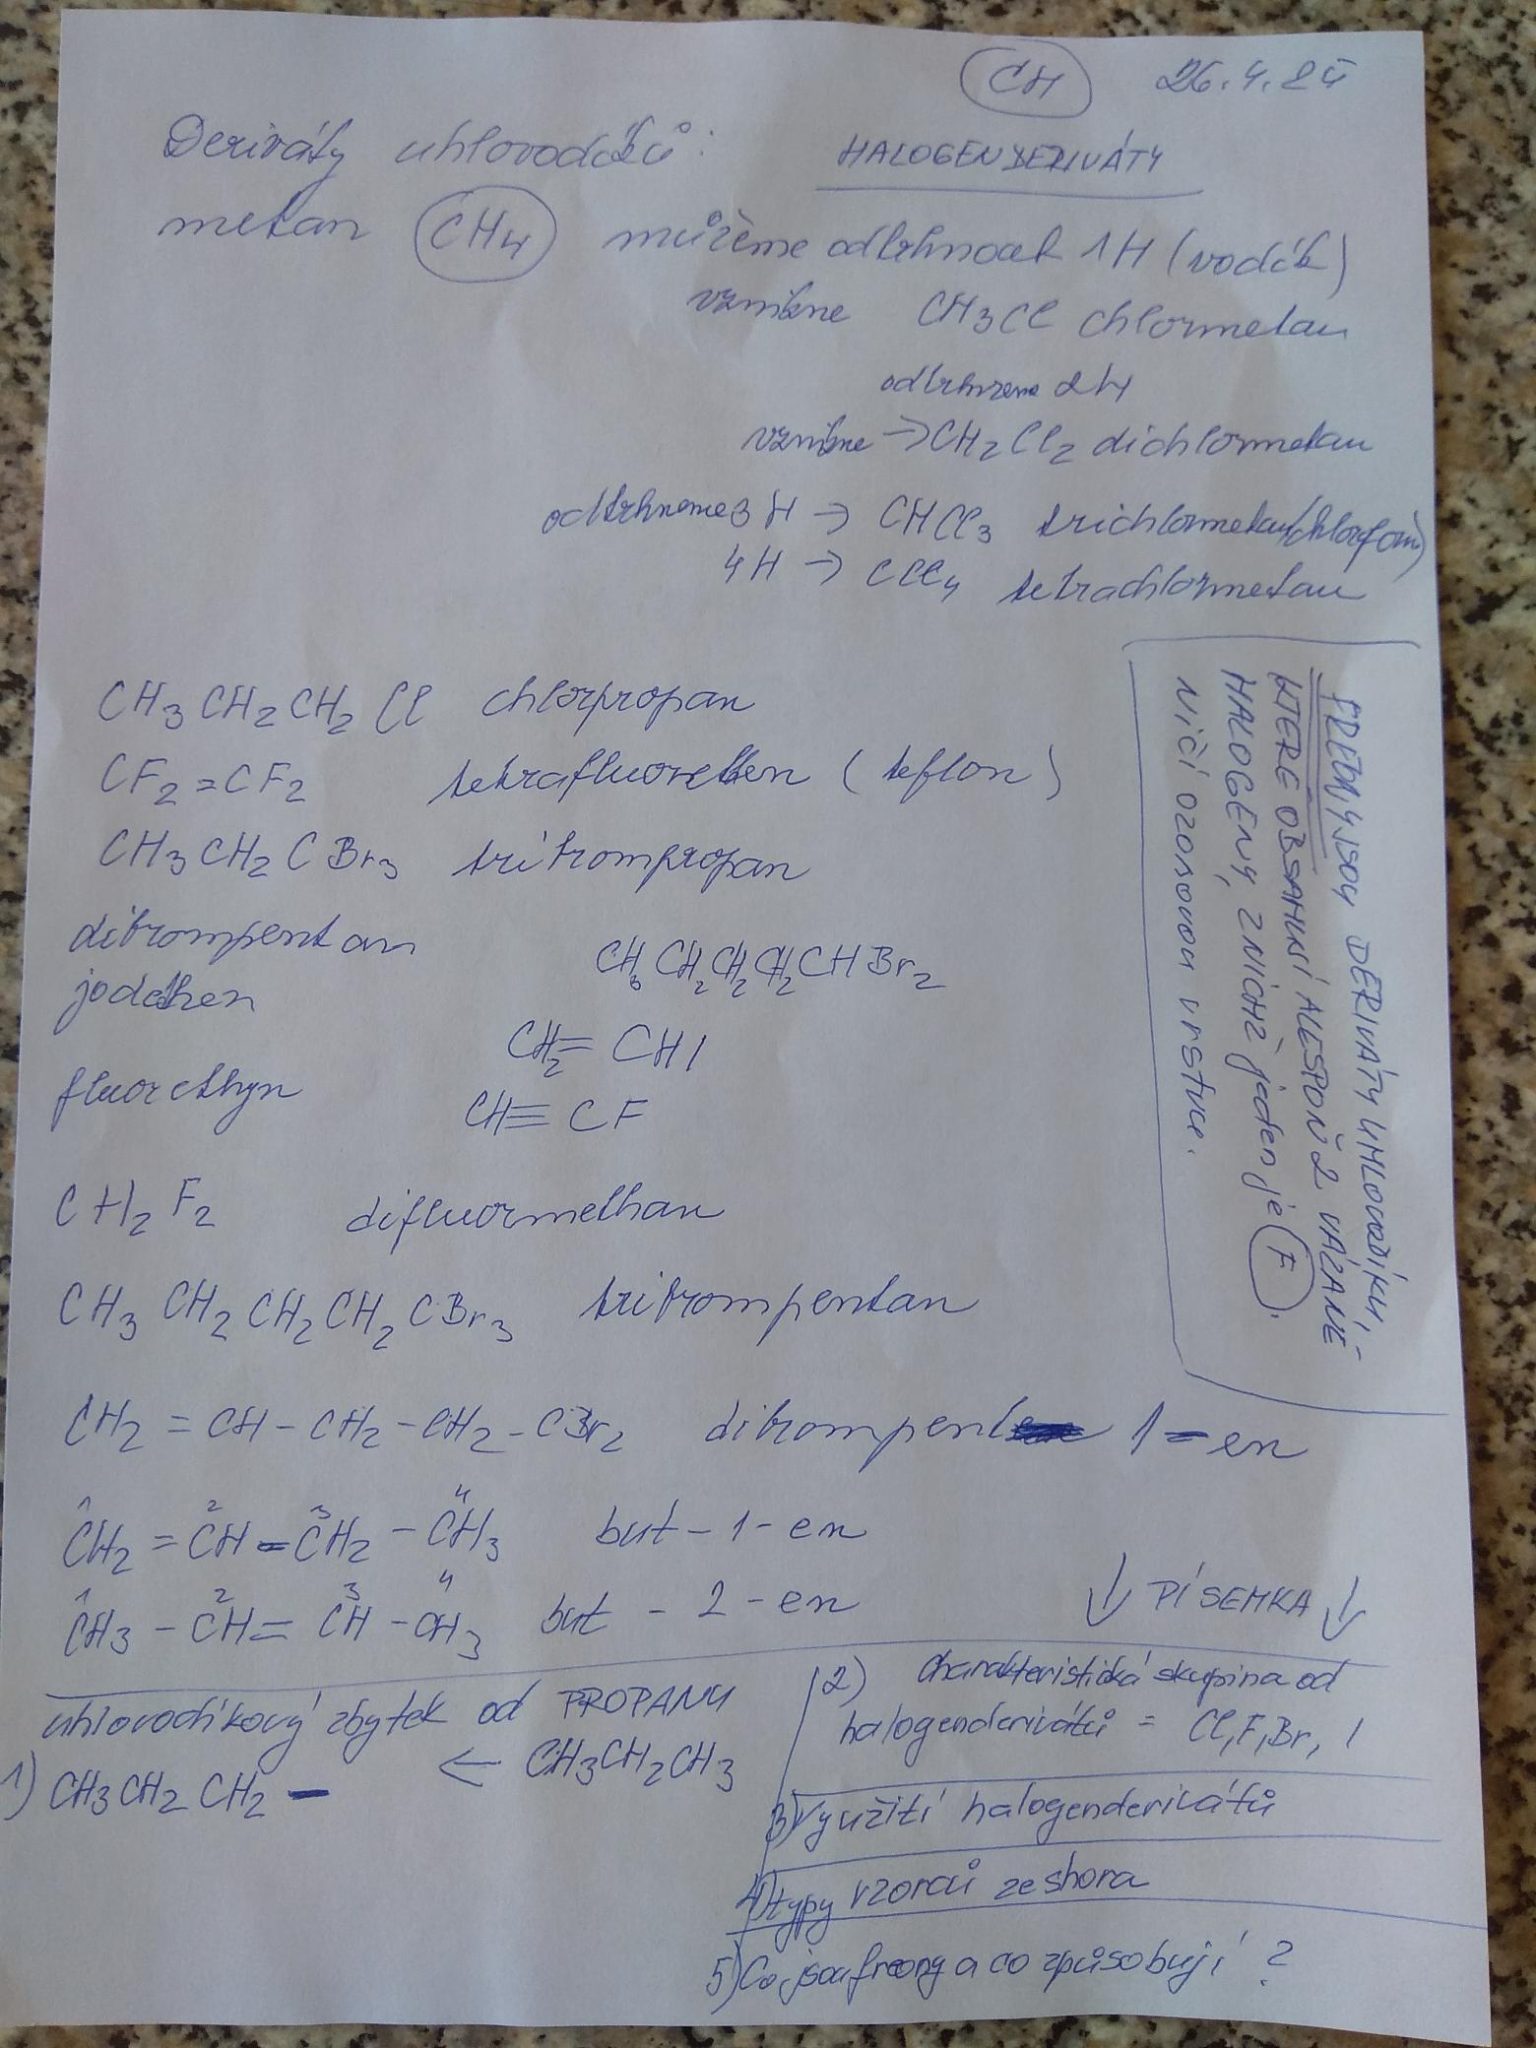 CH 26.4.
Deriváty uhlovodíků: HALOGENDERIVÁTY
metan CH4 můžeme odtrhnout 1H (vodík)
vznikne CH3Cl chlormetan
odtrhneme 2H
vznikne → CH2Cl2 dichlormetan
odtrhneme 3 H → CHCl3 trichlormetan (chlorform)
4H → CCl4 tetrachlormetan
CH3 CH2 CH2 Cl chlorpropan
CF2 = CF2 tetrafluorethen (teflon)
CH3 CH2 C Br3 tribrompropan
dibrompentan CH3 CH2 CH2 CH2 CH Br2
jodethen CH2 = CHI
fluorethyn CH≡CF
CH2 F2 difluormethan
CH3 CH2 CH2 CH2 CBr3 tribrompentan
CH2 = CH - CH2 - CH2 - CBr2 dibrompent 1-en
1 2 3 4
CH2 = CH - CH2 - CH3 but - 1 - en
1 2 3 4
CH3 - CH = CH - CH3 but - 2 - en
FREONY JSOU DERIVÁTY UHLOVODÍKU,
KTERE OBSAHUJÍ ALESPOŇ 2 VÁZANE
HALOGENY, Z NICHŽ jeden je F.
NIČÍ OZONOVOU VRSTVU.
↓ PÍSEMKA ↓
uhlovodíkový zbytek od PROPANU
1) CH3CH2 CH2 - ← CH3CH2CH3
2) Charakteristická skupina od
halogenderivátů = Cl, F, Br, I
3) Využití halogenderivátů
4) typy vzorců ze shora
5) Co jsou freony a co způsobují ?